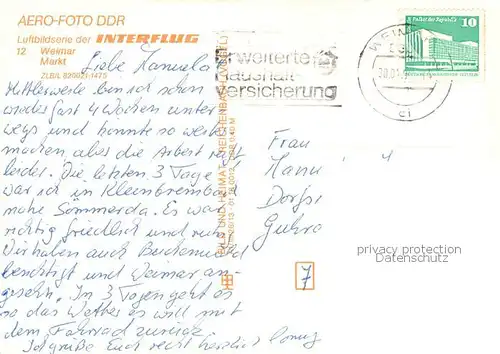 AERO-FOTO DDR
Luftbildserie der INTERFLUG
12 Weimar
Markt
ZLB/L 820021-1475
Liebe Manuela
Mittlerweile bin ich schon
wieder fast 4 Wochen unter
wegs und könnte so weiter
machen, aber die Arbeit ruft
leider. Die letzten 3 Tage
war ich in Kleinbrembach
nahe Sömmerda. Es war
richtig friedlich und ruhig
Wir haben auch Buchenwald
besichtigt und Weimar an-
gesehn. In 3 Tagen geht es
so das Wetter es will mit
dem Fahrrad zurück.
Ich grüße Euch recht herzlich
Erweiterte
Haushalt
versicherung
WEIM
Palast der Republik
10
Frau
Dorfst
7
privacy protection
Datenschutz